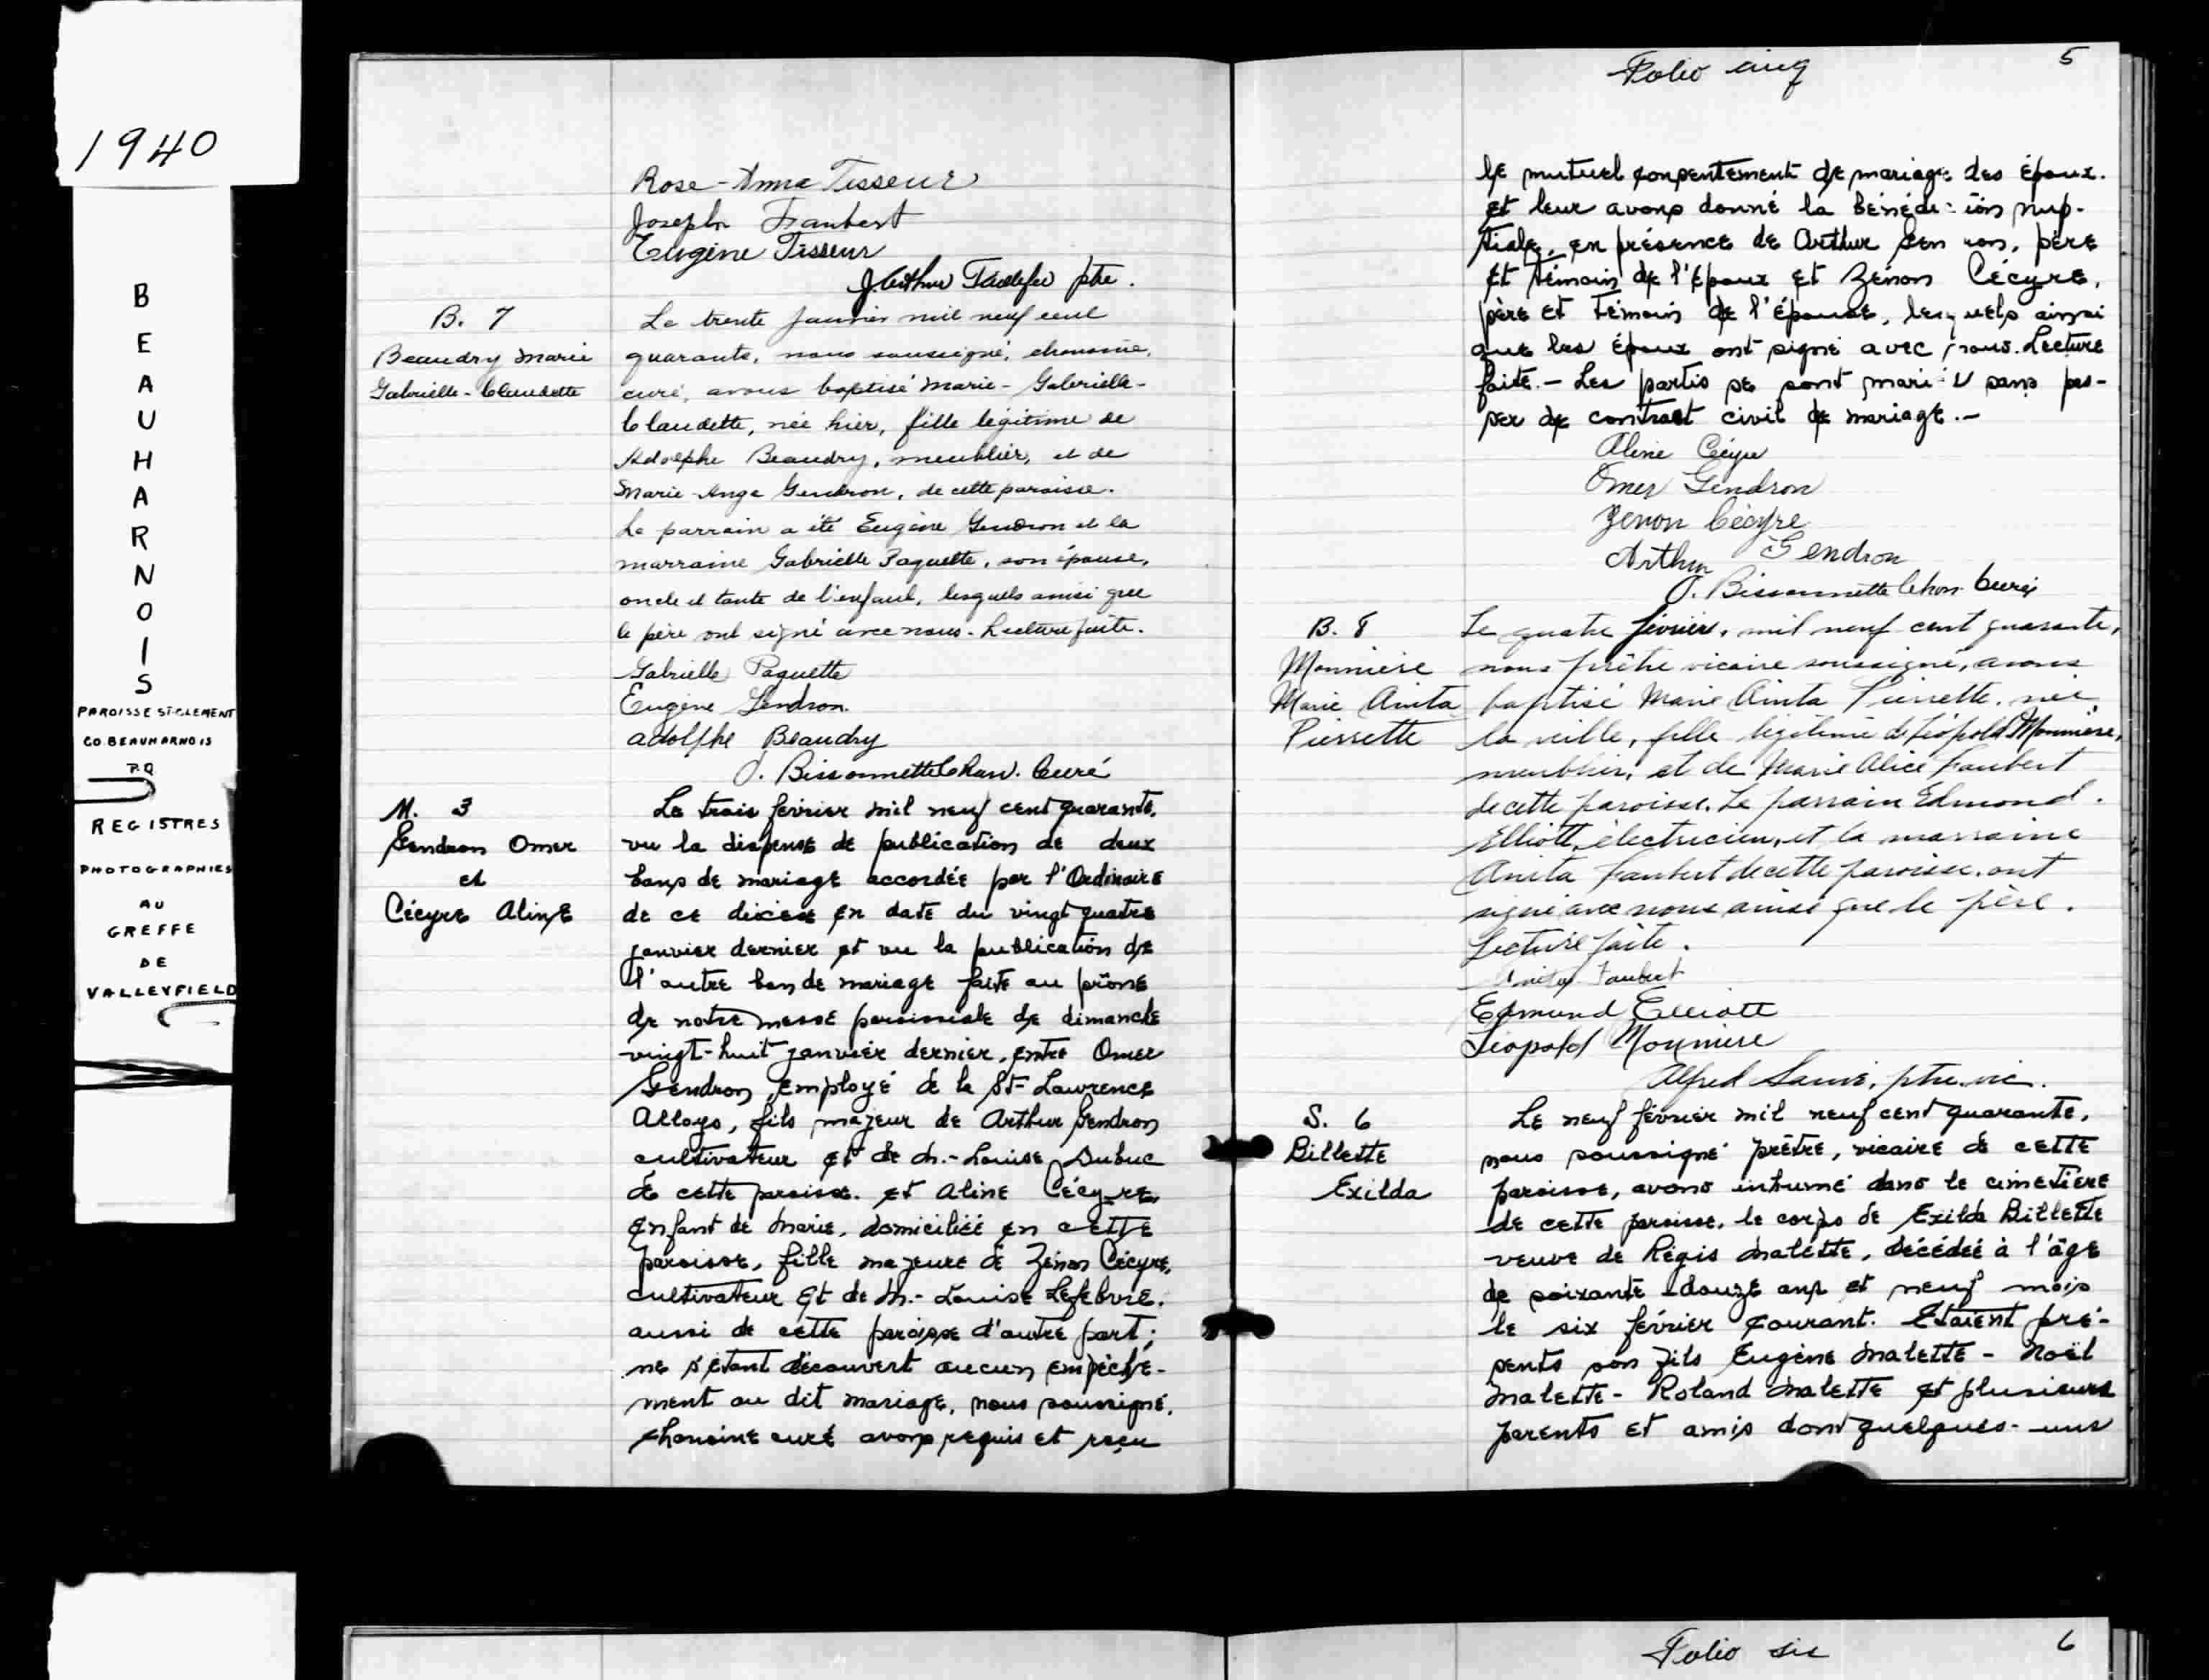 1940
B
E
A
U
H
A
R
N
O
I
S
PAROISSE ST-CLEMENT
CO. BEAUHARNOIS
P.Q
REGISTRES
PHOTOGRAPHIES
AU
GREFFE
DE
VALLEYFIELD
Rose-Anna Tisseur
Joseph Faubert
Eugène Tisseur
J. Arthur ptre.
B. 7
Beaudry Marie
Gabrielle-Claudette
Le trente janvier mil neuf cent
quarante, nous soussigné, chanoine,
curé, avons baptisé Marie-Gabrielle-
Claudette, née hier, fille légitime de
Adolphe Beaudry, meublier, et de
Marie-Ange Gendron, de cette paroisse.
Le parrain a été Eugène Gendron et la
marraine Gabrielle Paquette, son épouse,
oncle et tante de l'enfant, lesquels ainsi que
le père ont signé avec nous. Lecture faite.
Gabrielle Paquette
Eugène Gendron.
Adolphe Beaudry
J. Bissonnette Chan. Curé
M. 3
Gendron Omer
et
Cécyre Aline
Le trois février mil neuf cent quarante,
vu la dispense de publication de deux
bans de mariage accordée par l'Ordinaire
de ce diocèse en date du vingt quatre
janvier dernier et vu la publication de
l'autre ban de mariage faite au prône
de notre messe paroissiale de dimanche
vingt-huit janvier dernier, entre Omer
Gendron, employé de la St-Lawrence
Alloys, fils majeur de Arthur Gendron
cultivateur et de M.-Louise Dubuc
de cette paroisse. et Aline Cécyre,
enfant de Marie, domiciliée en cette
paroisse, fille majeure de Zénon Cécyre,
cultivateur et de M.-Louise Lefebvre.
aussi de cette paroisse d'autre part;
ne s'étant découvert aucun empêche-
ment au dit mariage, nous soussigné,
chanoine curé avons requis et reçu
Folio cinq 5
le mutuel consentement de mariage des époux.
et leur avons donné la bénédiction nup-
tiale, en présence de Arthur Gendron, père
et témoin de l'époux et Zénon Cécyre,
père et témoin de l'épouse, lesquels ainsi
que les époux ont signé avec nous. Lecture
faite.- Les partis se sont mariés sans pas-
ser de contract civil de mariage.-
Aline Cécyre
Omer Gendron
Zenon Cécyre
Arthur Gendron
J. Bissonnette Chan. Curé
B. 8
Monnière
Marie Anita
Pierrette
Le quatre février, mil neuf cent quarante,
nous prêtre vicaire soussigné, avons
baptisé Marie Anita Pierrette, née
la veille, fille légitime de Léopold Monnière,
meublier, et de Marie Alice Faubert
de cette paroisse. Le parrain Edmond
Elliott, électricien, et la marraine
Anita Faubert de cette paroisse, ont
signé avec nous ainsi que le père.
Lecture faite.
Anita Faubert
Edmund Elliott
Léopold Monnière
Alfred Sauvé, ptre. vic.
S. 6
Billette
Exilda
Le neuf février mil neuf cent quarante,
nous soussigné prêtre, vicaire de cette
paroisse, avons inhumé dans le cimetière
de cette paroisse, le corps de Exilda Billette
veuve de Régis Malette, décédée à l'âge
de soixante-douze ans et neuf mois
le six février courant. Etaient pré-
sents son fils Eugène Malette - Noël
Malette - Roland Malette et plusieurs
parents et amis dont quelques-uns
Folio six 6